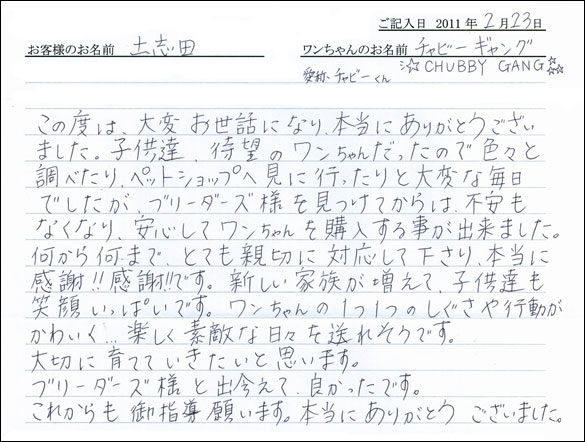 ご記入日 2011年2月23日
お客様のお名前 土志田 ワンちゃんのお名前 チャビーギャング
愛称、チャビーくん ☆CHUBBY GANG☆
この度は、大変お世話になり、本当にありがとうござい
ました。子供達、待望のワンちゃんだったので色々と
調べたり、ペットショップへ見に行ったりと大変な毎日
でしたが、ブリーダーズ様を見つけてからは、不安も
なくなり、安心してワンちゃんを購入する事が出来ました。
何から何まで、とても親切に対応して下さり、本当に
感謝!!感謝!!です。新しい家族が増えて、子供達も
笑顔いっぱいです。ワンちゃんの1つ1つのしぐさや行動が
かわいく…楽しく素敵な日々を送れそうです。
大切に育てていきたいと思います。
ブリーダーズ様と出会えて、良かったです。
これからも御指導願います。本当にありがとうございました。